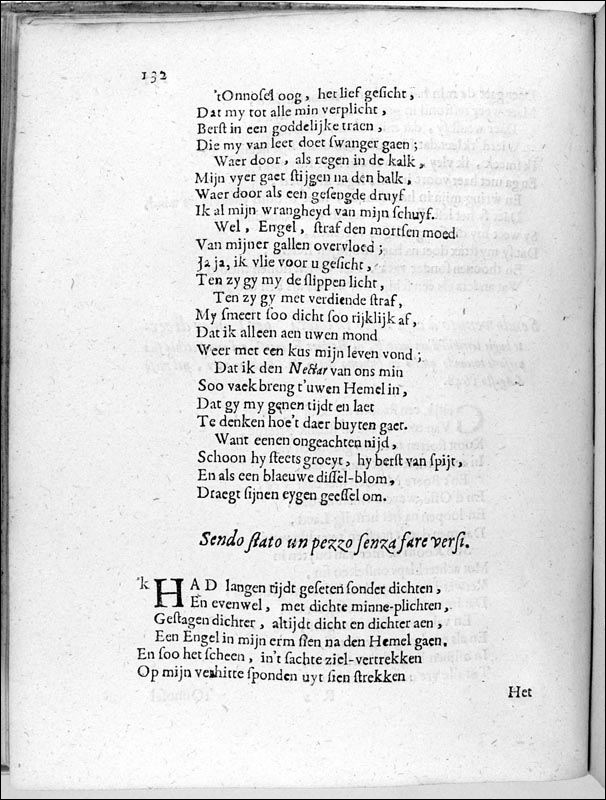 132
'tOnnosel oog, het lief gesicht,
Dat my tot alle min verplicht,
Berst in een goddelijke traen,
Die my van leet doet swanger gaen;
Waer door, als regen in de kalk,
Mijn vyer gaet stijgen na den balk,
Waer door als een gesengde druyf
Ik al mijn wrangheyd van mijn schuyf.
Wel, Engel, straf den mortsen moed
Van mijner gallen overvloed;
Ja ja, ik vlie voor u gesicht,
Ten zy gy my de slippen licht,
Ten zy gy met verdiende straf,
My smeert soo dicht soo rijklijk af,
Dat ik alleen aen uwen mond
Weer met een kus mijn leven vond;
Dat ik den Nectar van ons min
Soo vaek breng t'uwen Hemel in,
Dat gy my genen tijdt en laet
Te denken hoe't daer buyten gaet.
Want eenen ongeachten nijd,
Schoon hy steets groeyt, hy berst van spijt,
En als een blaeuwe dissel-blom,
Draegt sijnen eygen geessel om.
Sendo stato un pezzo senza fare versi.
'k HAD langen tijdt geseten sonder dichten,
En evenwel, met dichte minne-plichten,
Gestagen dichter, altijdt dicht en dichter aen,
Een Engel in mijn erm sien na den Hemel gaen.
En soo het scheen, in't sachte ziel-vertrekken
Op mijn verhitte sponden uyt sien strekken
Het